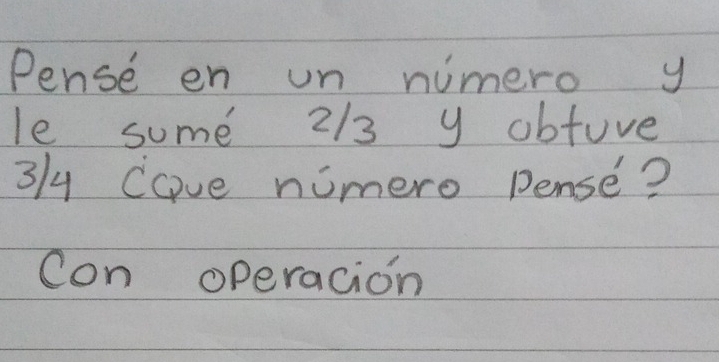 Pensé en un número y
le sumé 2/3 y obtuve
3/4 ¿Que número pensé?
Con operación